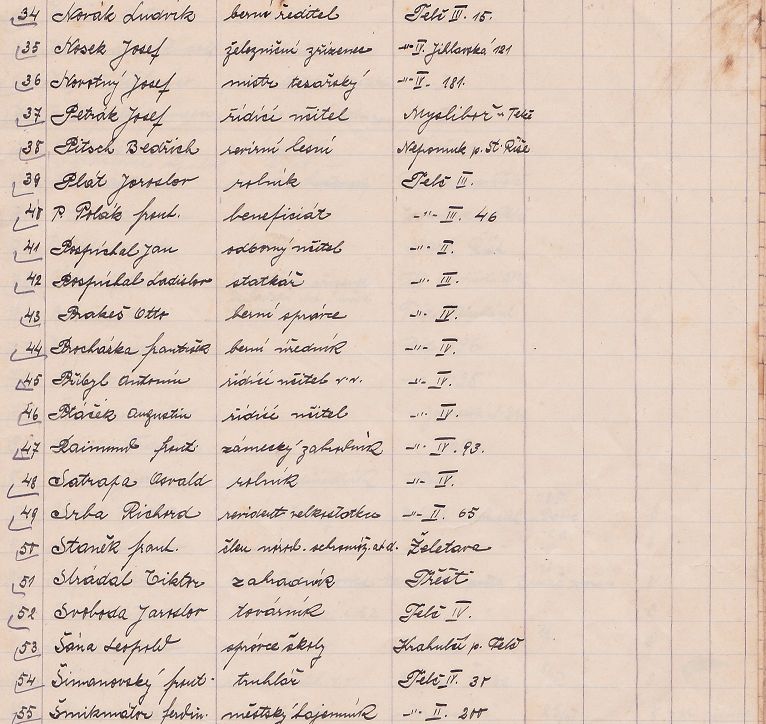 34 Novák Ludvík berní ředitel Telč IV. 15.
35 Nosek Josef železniční zřízenec -"- II. Jihlavská 121
36 Novotný Josef mistr tesařský -"- II- 181.
37 Petrák Josef řídící učitel Mysliboř u Telče
38 Pitsch Bedřich revírní lesní Nepomuk p. St. Říše
39 Plát Jaroslav rolník Telč III.
40 P Polák frant. beneficiát -"- III. 46
41 Pospíchal Jan odborný učitel -"- II.
42 Pospíchal Ladislav statkář -"- III.
43 Prakeš Otto berní správce -"- IV.
44 Procházka František berní úředník -"- IV.
45 Přibyl Antonín řídící učitel v.v. -"- IV.
46 Ptáček Augustin řídící učitel -"- IV.
47 Raimund frant. zámecký zahradník -"- IV. 93.
48 Satrapa Osvald rolník -"- IV.
49 Srba Richard revident velkostatku -"- II. 65
50 Staněk frant. člen národ. shromáž. atd. Želetava
51 Strádal Viktor zahradník Třešť
52 Svoboda Jaroslav továrník Telč IV.
53 Šána Leopold správce školy Krahulčí p. Telč
54 Šimanovský frant. truhlář Telč IV. 30
55 Šmikmátor ferdin. městský hajemník -"- II. 200